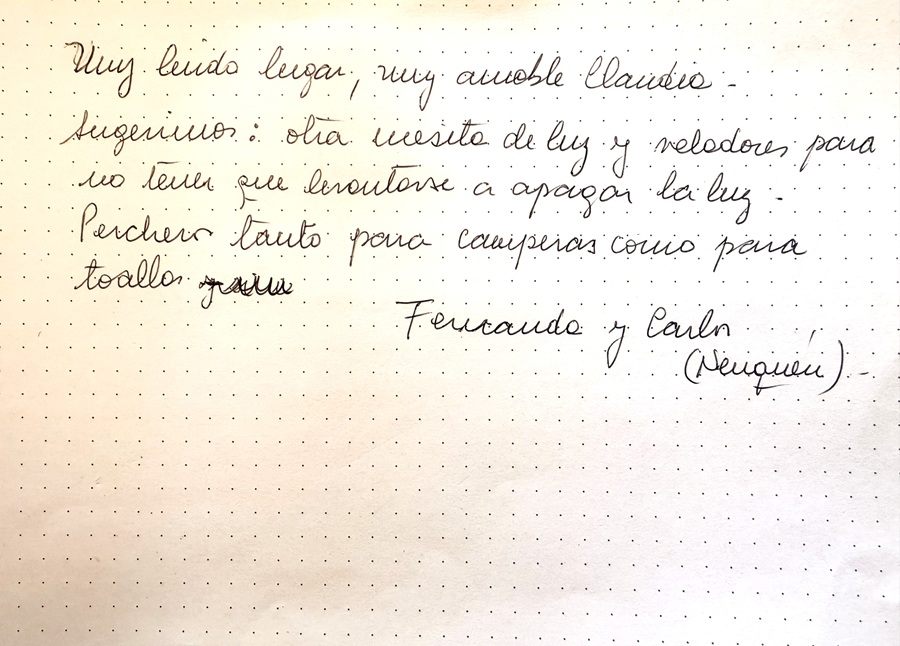 Muy lindo lugar, muy amable Claudia -
Sugerimos: otra mesita de luz y veladores para
no tener que levantarse a apagar la luz.
Percheros tanto para camperas como para
toallas
Fernanda y Carlos
(Neuquén).-